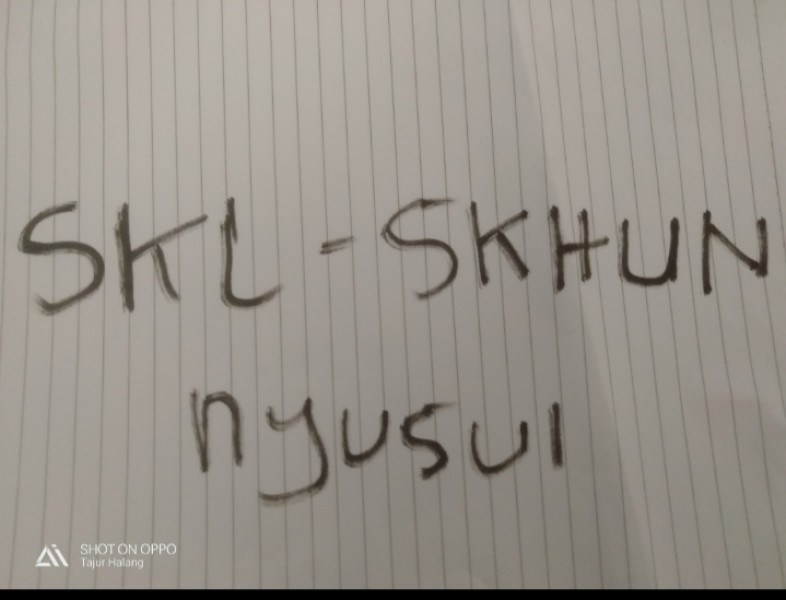 SKL - SKHUN
nyusul
SHOT ON OPPO
Tajur Halang